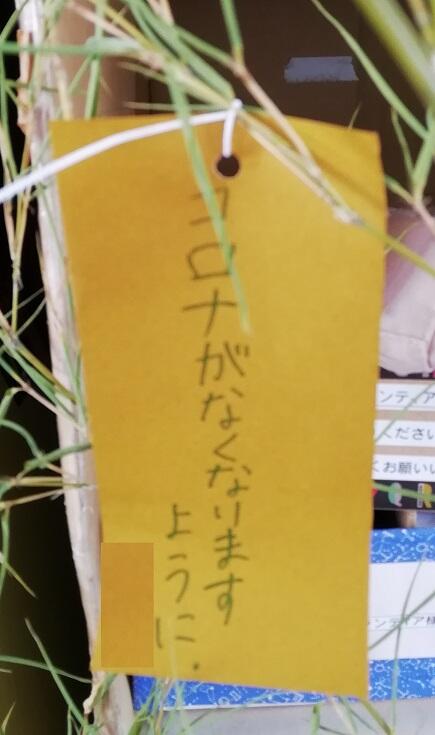 コロナがなくなります
ように.
ンティア
ください
くお願いい
ンティア様